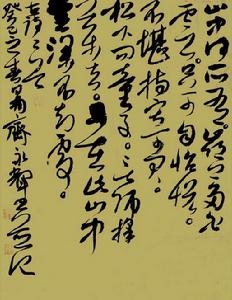 山中何所有嶺上多白
雲只可自怡悦
不堪持寄君
松下问童子言师採
药去只在此山中
雲深不知處
古詩二首
癸巳之春易齋